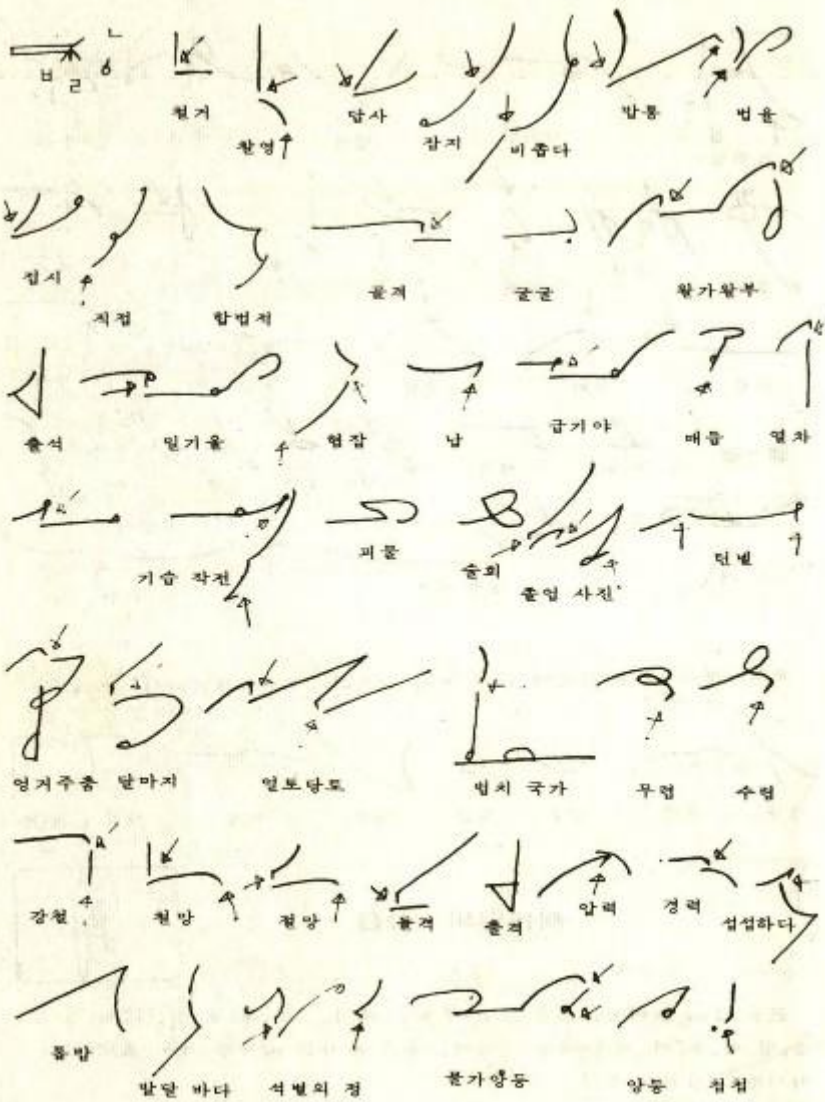 ㄴ
ㅂ ㄹ ㅎ
철거 촬영 답사 잡지 비좁다 밥통 법율
접시 직접 합법적 골격 굴굴 왈가왈부
출석 밀기울 협잡 납 급기야 매듭 열차
기습 작전 괴물 술회 졸업 사진 턴넬
엉거주춤 달마지 얼토당토 법치 국가 무렵 수렵
강철 철망 절망 돌격 출격 압력 경력 섭섭하다
톱밥 발달 바다 석별의 정 불가양등 양통 첩첩